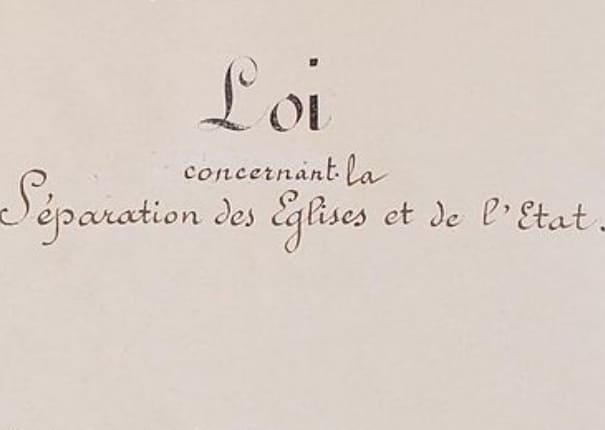 Loi
concernant la
Séparation des Eglises et de l'Etat.